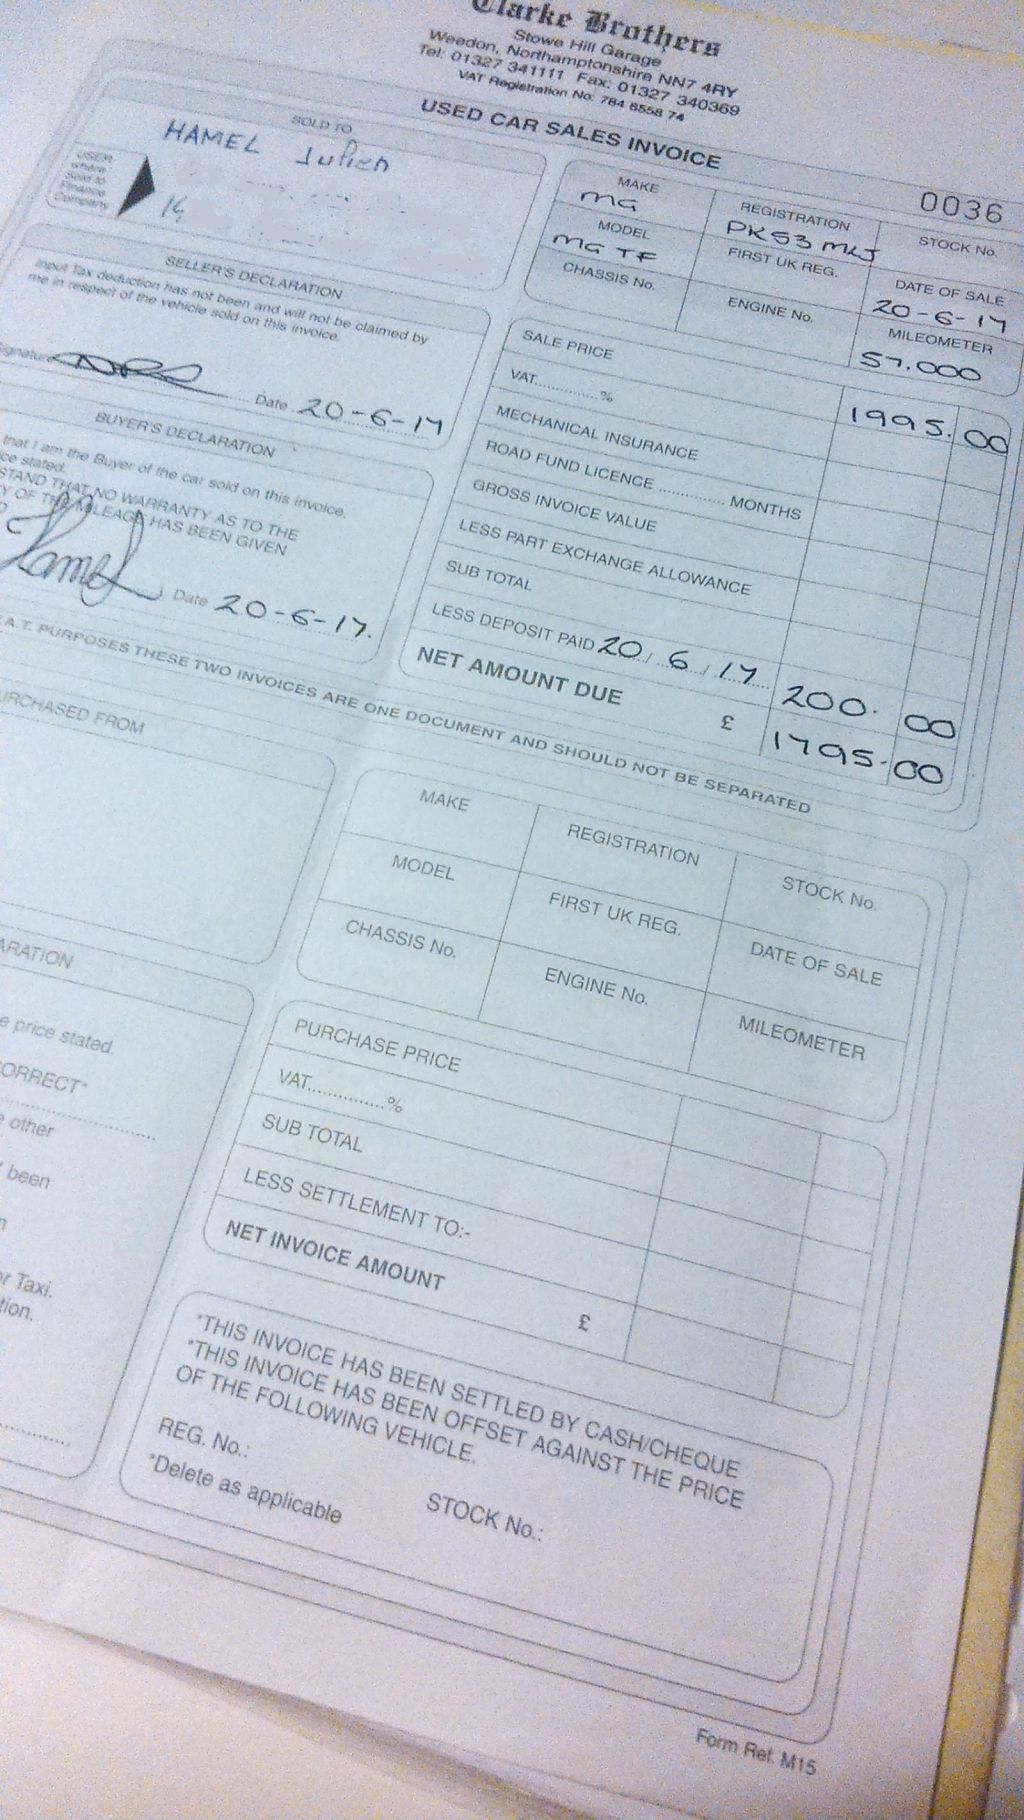 Clarke Brothers
Stowe Hill Garage
Weedon, Northamptonshire NN7 4RY
Tel: 01327 341111 Fax: 01327 340369
VAT Registration No: 784 6558 74
USED CAR SALES INVOICE
0036
SOLD TO
HAMEL Julien
USER
where
Sold to
Finance
Company
MAKE
MG
REGISTRATION
PK53 MLJ
STOCK No.
MODEL
MG TF
FIRST UK REG.
DATE OF SALE
20-6-17
CHASSIS No.
ENGINE No.
MILEOMETER
57.000
SELLER'S DECLARATION
Input Tax deduction has not been and will not be claimed by
me in respect of the vehicle sold on this invoice.
Signature
Date 20-6-17
BUYER'S DECLARATION
that I am the Buyer of the car sold on this invoice.
stated.
STAND THAT NO WARRANTY AS TO THE
Y OF THE MILEAGE HAS BEEN GIVEN
Hamel
Date 20-6-17.
SALE PRICE 1995.00
VAT...............%
MECHANICAL INSURANCE
ROAD FUND LICENCE ............... MONTHS
GROSS INVOICE VALUE
LESS PART EXCHANGE ALLOWANCE
SUB TOTAL
LESS DEPOSIT PAID 20/6/17 200.00
NET AMOUNT DUE £ 1795.00
.A.T. PURPOSES THESE TWO INVOICES ARE ONE DOCUMENT AND SHOULD NOT BE SEPARATED
URCHASED FROM
MAKE
REGISTRATION
STOCK No.
MODEL
FIRST UK REG.
DATE OF SALE
CHASSIS No.
ENGINE No.
MILEOMETER
ARATION
e price stated.
ORRECT*
other
been
or Taxi.
tion.
PURCHASE PRICE
VAT...............%
SUB TOTAL
LESS SETTLEMENT TO:-
NET INVOICE AMOUNT £
*THIS INVOICE HAS BEEN SETTLED BY CASH/CHEQUE
*THIS INVOICE HAS BEEN OFFSET AGAINST THE PRICE
OF THE FOLLOWING VEHICLE.
REG. No.:
STOCK No.:
*Delete as applicable
Form Ref. M15